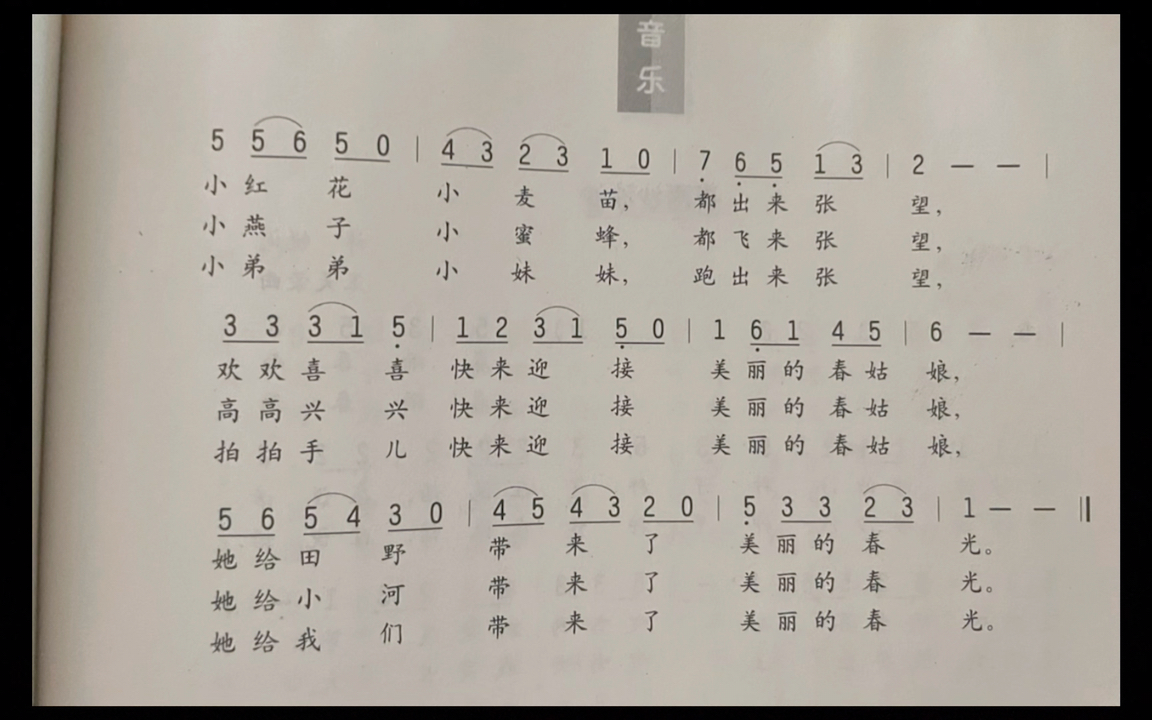 音
乐
5 5 6 5 0 | 4 3 2 3 1 0 | 7 6 5 1 3 | 2 — — |
小 红 花 小 麦 苗， 都 出 来 张 望，
小 燕 子 小 蜜 蜂， 都 飞 来 张 望，
小 弟 弟 小 妹 妹， 跑 出 来 张 望，
3 3 3 1 5 | 1 2 3 1 5 0 | 1 6 1 4 5 | 6 — — |
欢 欢 喜 喜 快 来 迎 接 美 丽 的 春 姑 娘，
高 高 兴 兴 快 来 迎 接 美 丽 的 春 姑 娘，
拍 拍 手 儿 快 来 迎 接 美 丽 的 春 姑 娘，
5 6 5 4 3 0 | 4 5 4 3 2 0 | 5 3 3 2 3 | 1 — — ‖
她 给 田 野 带 来 了 美 丽 的 春 光。
她 给 小 河 带 来 了 美 丽 的 春 光。
她 给 我 们 带 来 了 美 丽 的 春 光。